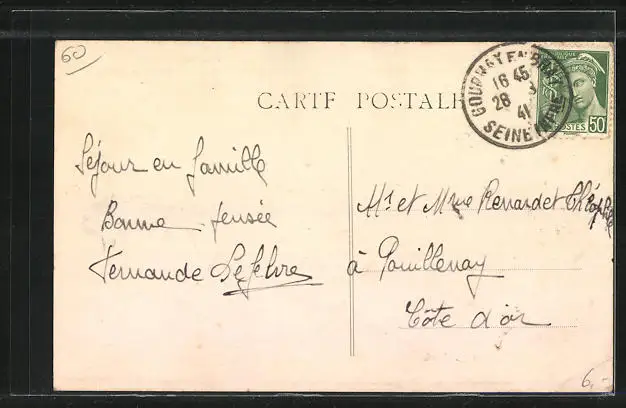 60
CARTE POSTALE
GOURNAY EN BRAY
16 45
28 3
41
SEINE INFRE
POSTES 50
Séjour en famille
Bonne pensée
Fernande Lefebvre
Mr et Mme Renardet Théophile
à Pouillenay
Côte d'or
6,-